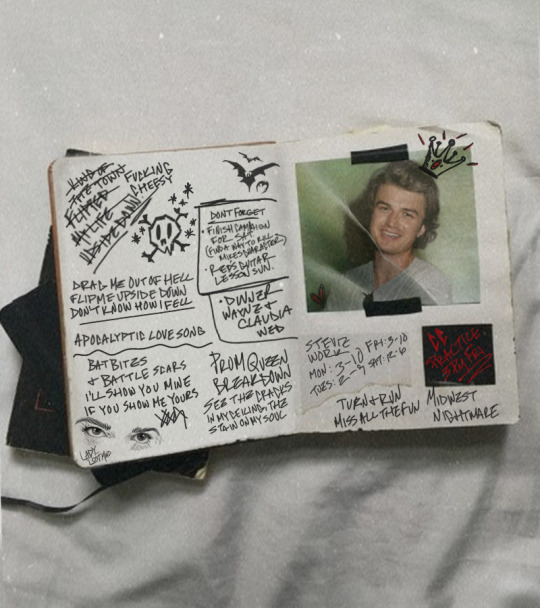 KIND OF
THE TOWN
FLIPPED
MY LIFE
UPSIDE DOWN
FUCKING
CHEESY
DRAG ME OUT OF HELL
FLIP ME UPSIDE DOWN
DON'T KNOW HOW I FELL
APOCALYPTIC LOVE SONG
BAT BITES
& BATTLE SCARS
I'LL SHOW YOU MINE
IF YOU SHOW ME YOURS
LADY
DON'T FORGET
• FINISH CAMPAIGN
FOR SAT
(FIND A WAY TO KILL
MIKES CHARACTER)
• REDS GUITAR
LESSON SUN.
• DINNER
WAYNE &
CLAUDIA
WED
PROM QUEEN
BREAKDOWN
SEE THE CRACKS
IN MY CEILING, THE
STAIN ON MY SOUL
STEVIE
WORK
MON: 3-10
TUES: 2-9
FRI: 3-10
SAT: 12-6
CC
PRACTICE
FRI
TURN & RUN
MISS ALL THE FUN
MIDWEST
NIGHTMARE